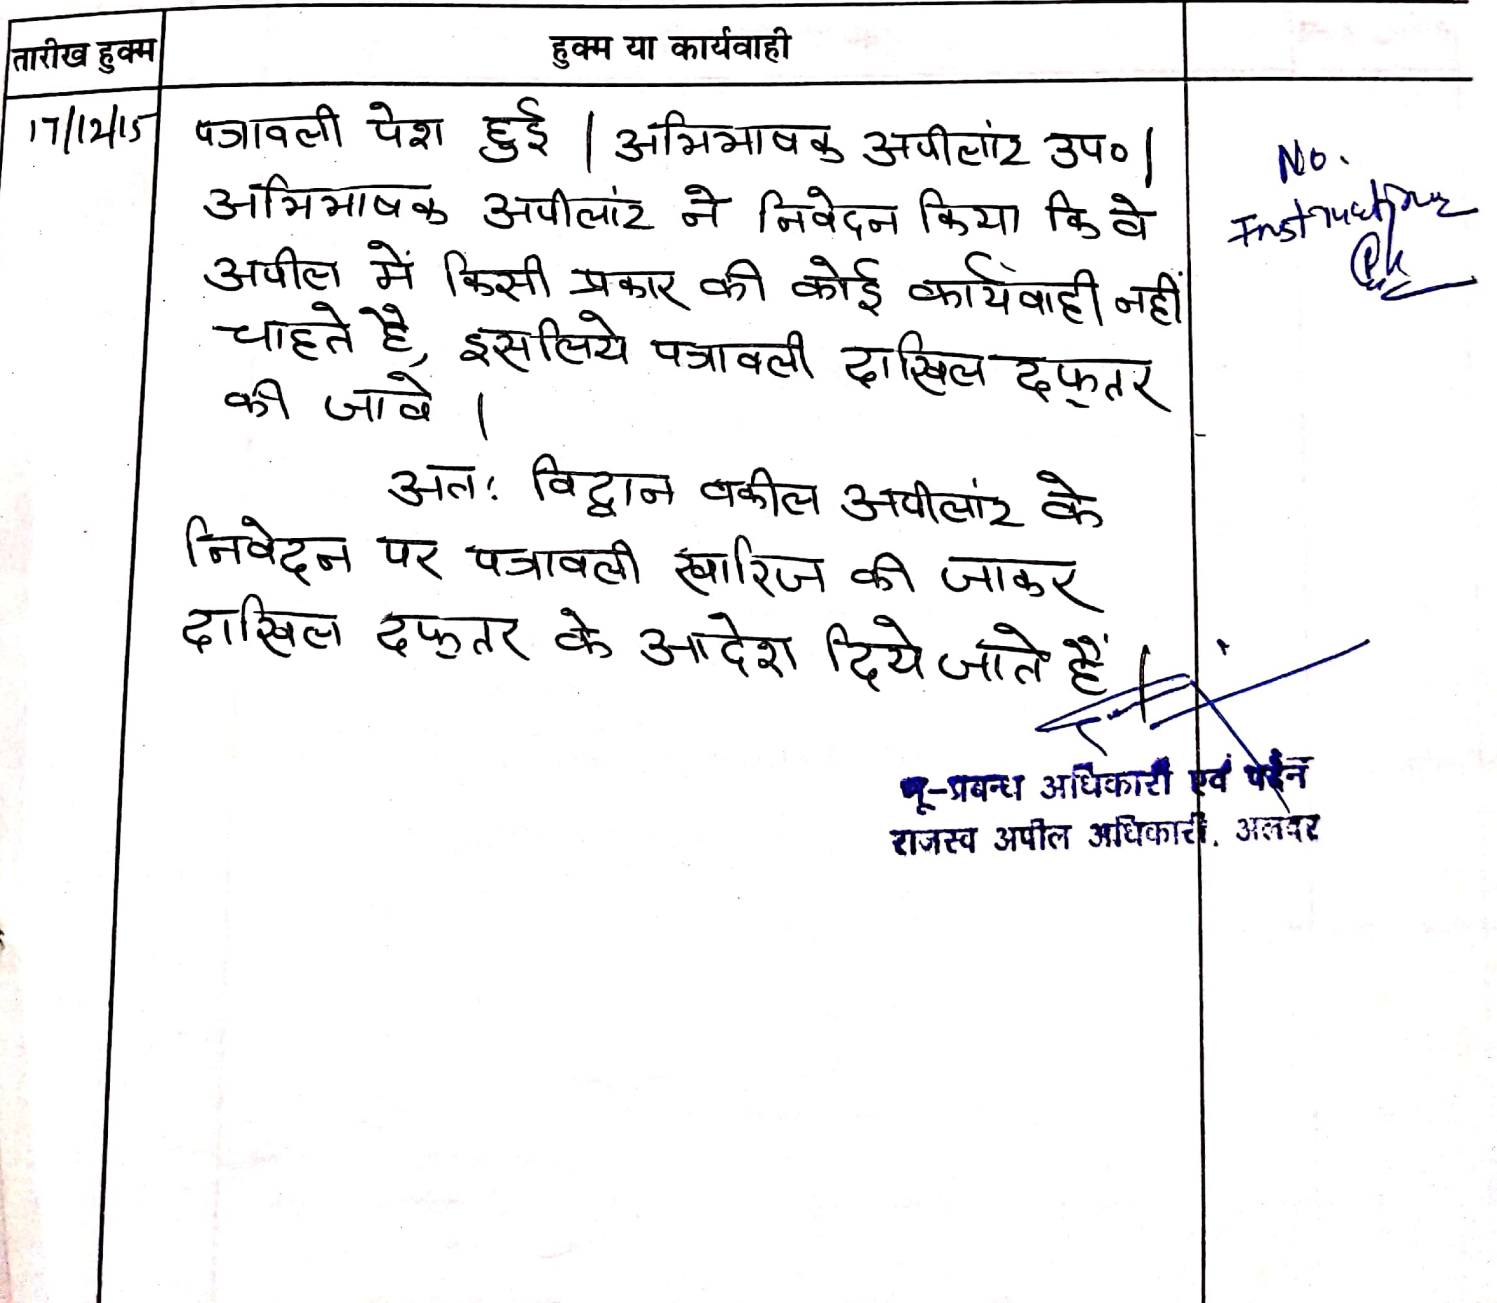 तारीख हुक्म
हुक्म या कार्यवाही
17/12/15
पत्रावली पेश हुई | अभिभाषक अपीलांट उप० |
अभिभाषक अपीलांट ने निवेदन किया कि वे
अपील में किसी प्रकार की कोई कार्यवाही नहीं
चाहते है, इसलिये पत्रावली दाखिल दफ्तर
की जावे |
अतः विद्वान वकील अपीलांट के
निवेदन पर पत्रावली खारिज की जाकर
दाखिल दफ्तर के आदेश दिये जाते हैं |
No.
Instructions
भू-प्रबन्ध अधिकारी एवं पदेन
राजस्व अपील अधिकारी, अलवर